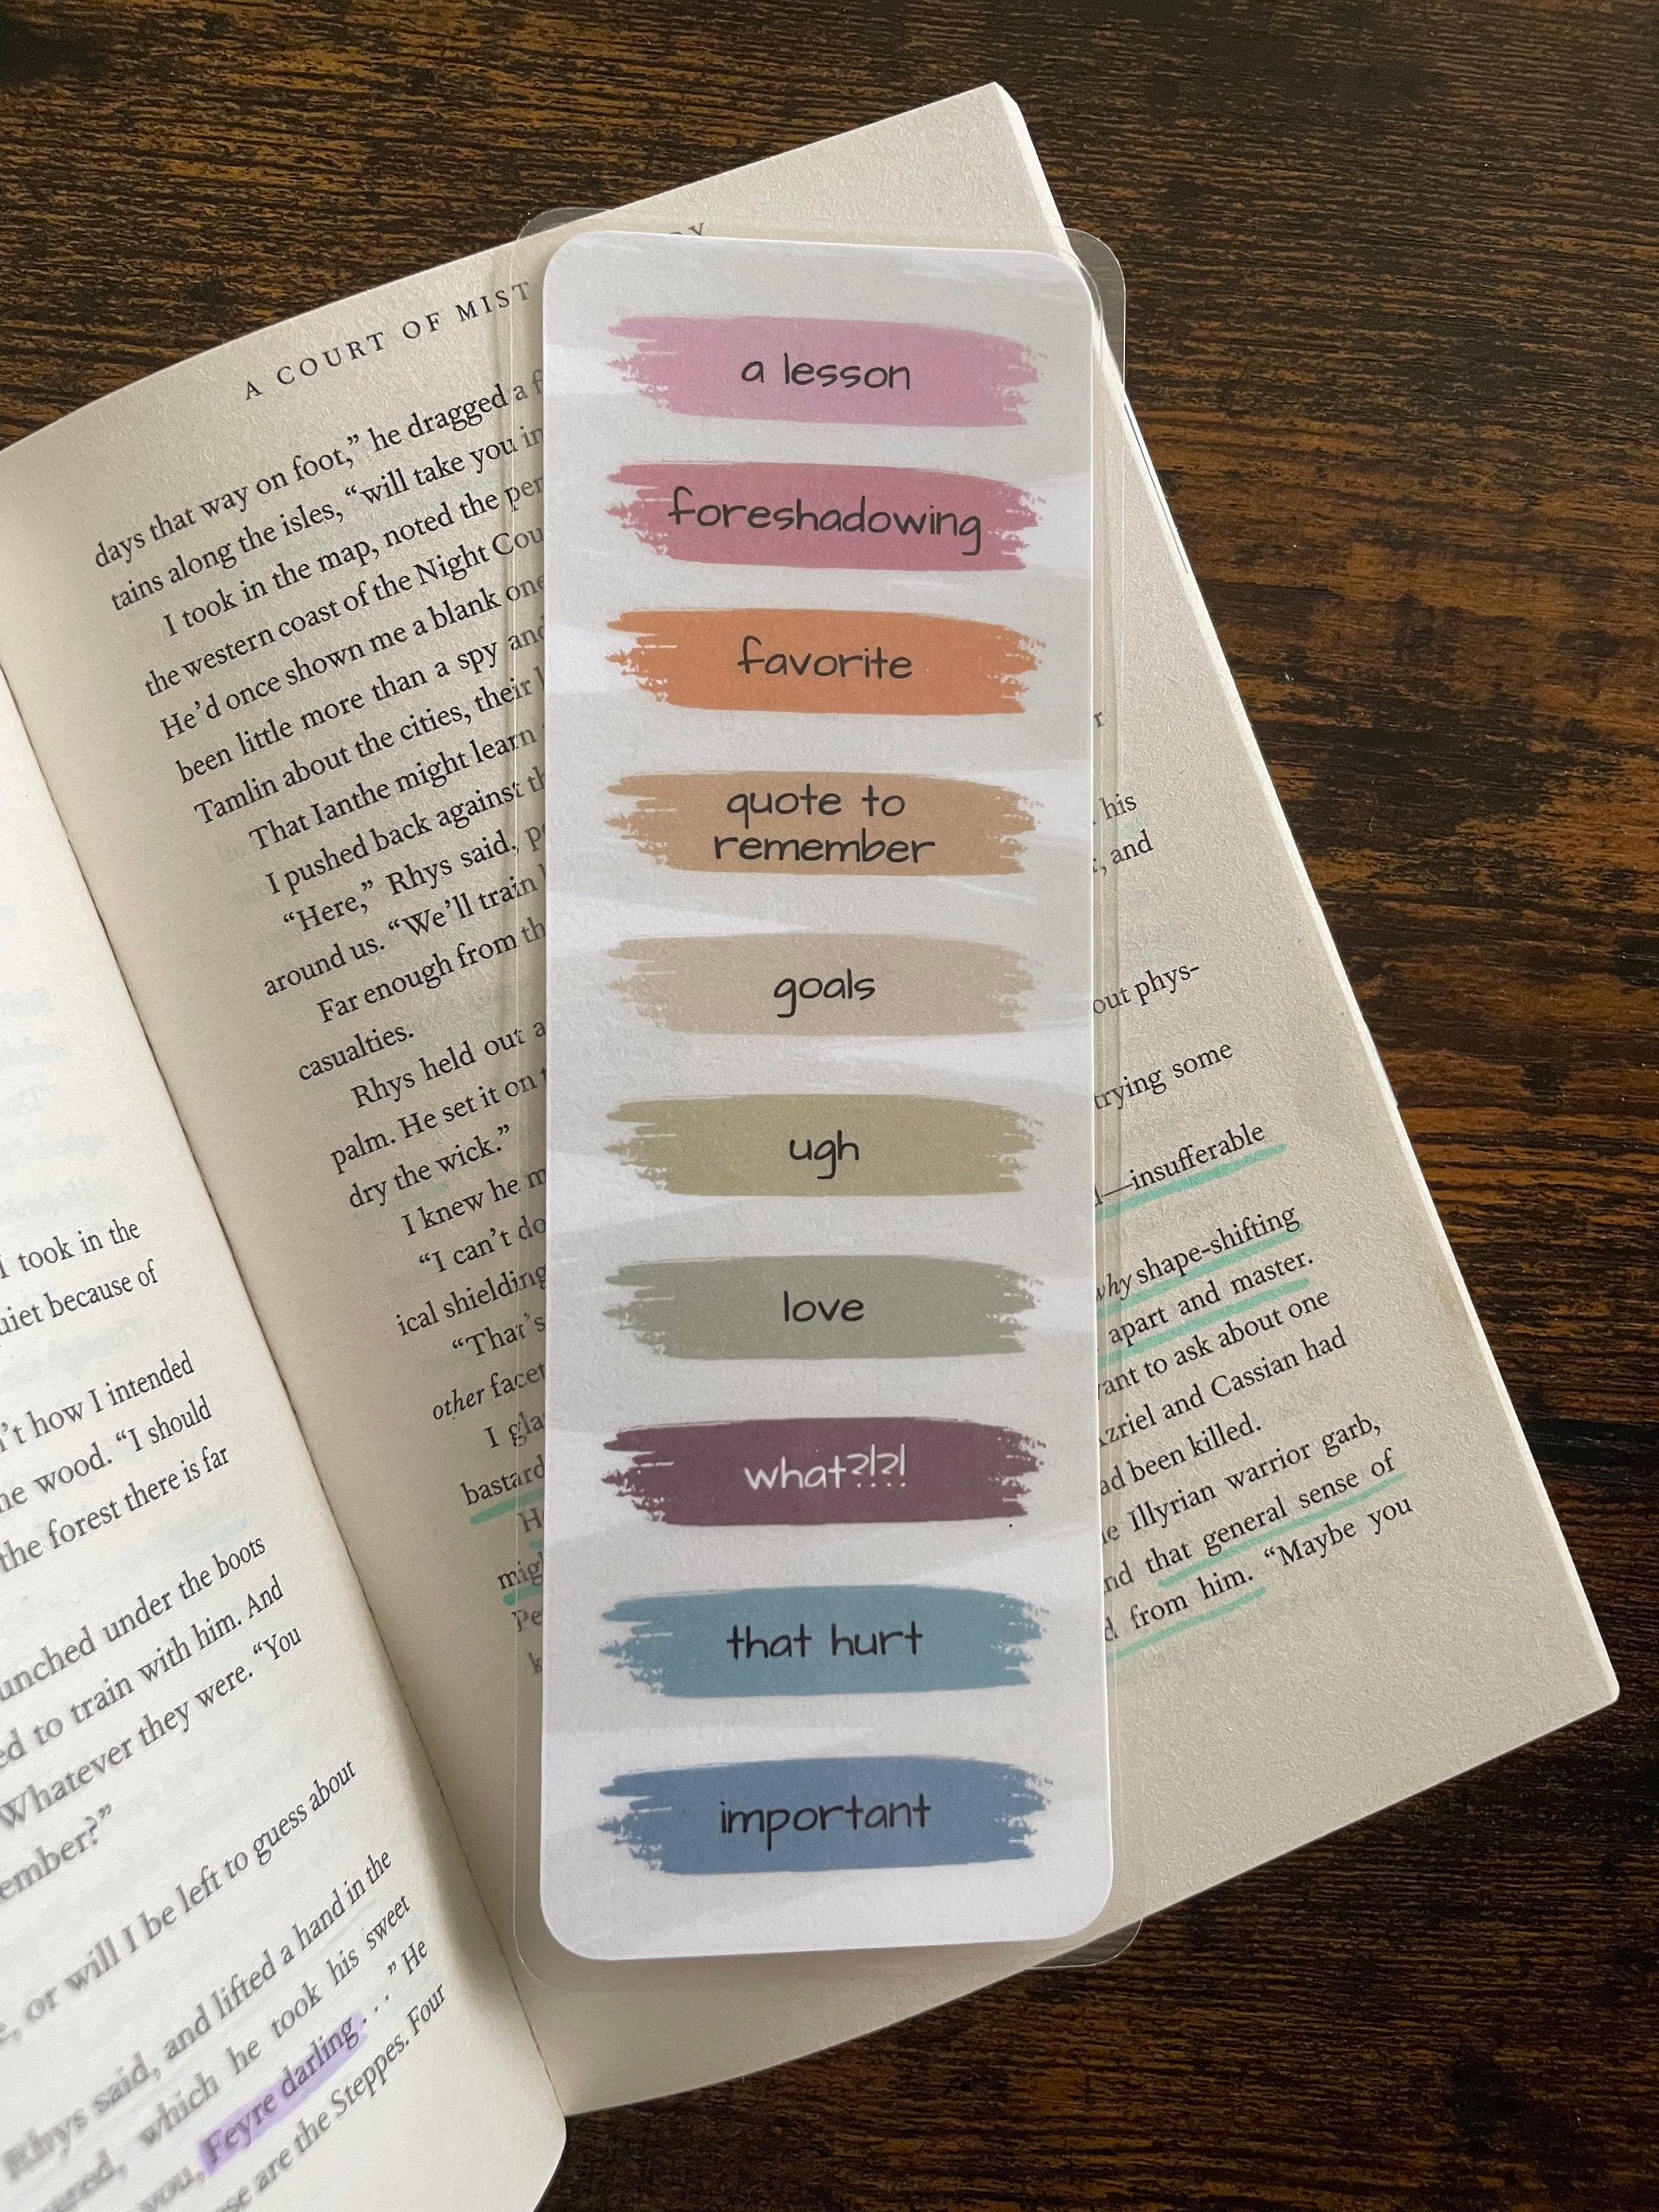 A COURT OF MIST
days that way on foot,” he dragged a f
tains along the isles, “will take you in
I took in the map, noted the per
the western coast of the Night Cou
He’d once shown me a blank one
been little more than a spy and
Tamlin about the cities, their
That Ianthe might learn
I pushed back against th
“Here,” Rhys said, p
around us. “We’ll train
Far enough from th
casualties.
Rhys held out a
palm. He set it on
dry the wick.”
I knew he m
“I can’t do
ical shielding
“That’s
other facet
I gla
bastard
H
mig
Pe
k
a lesson
foreshadowing
favorite
quote to
remember
goals
ugh
love
what?!?!
that hurt
important
his
, and
out phys-
trying some
—insufferable
why shape-shifting
apart and master.
ant to ask about one
Azriel and Cassian had
ad been killed.
Illyrian warrior garb,
nd that general sense of
d from him. “Maybe you
I took in the
uiet because of
’t how I intended
he wood. “I should
the forest there is far
unched under the boots
ed to train with him. And
Whatever they were. “You
ember?”
, or will I be left to guess about
Rhys said, and lifted a hand in the
which he took his sweet
you, Feyre darling . . .” He
se are the Steppes. Four